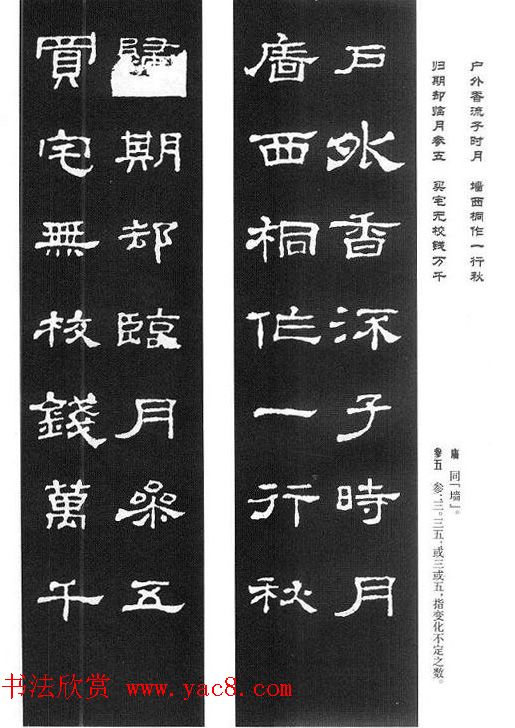 户外香流子时月 墙西桐作一行秋
归期却临月参五 买宅无校钱万千
廧 同「墙」。
参五 参:三。三五:或三或五,指变化不定之数。
戶外香深子時月
廧西桐作一行秋
歸期却臨月參五
買宅無校錢萬千
书法欣赏 www.yac8.com